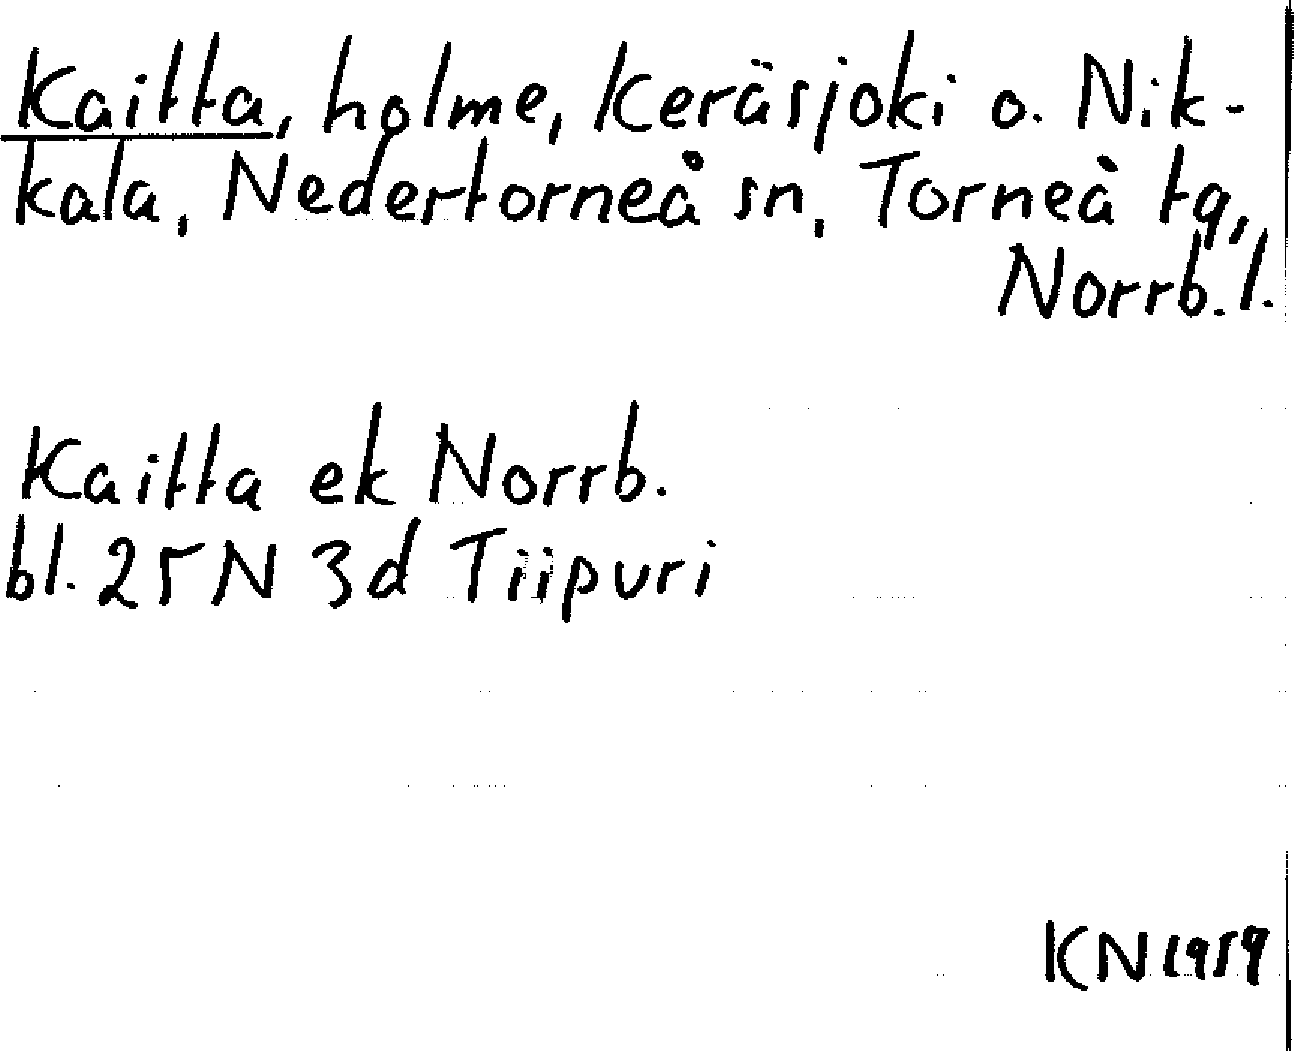 Kaitta, holme, Keräsjoki o. Nik-
kala, Nedertorneå sn, Torneå tg,
Norrb. l.
Kaitta ek Norrb.
bl. 25 N 3d Tiipuri
KN 1959